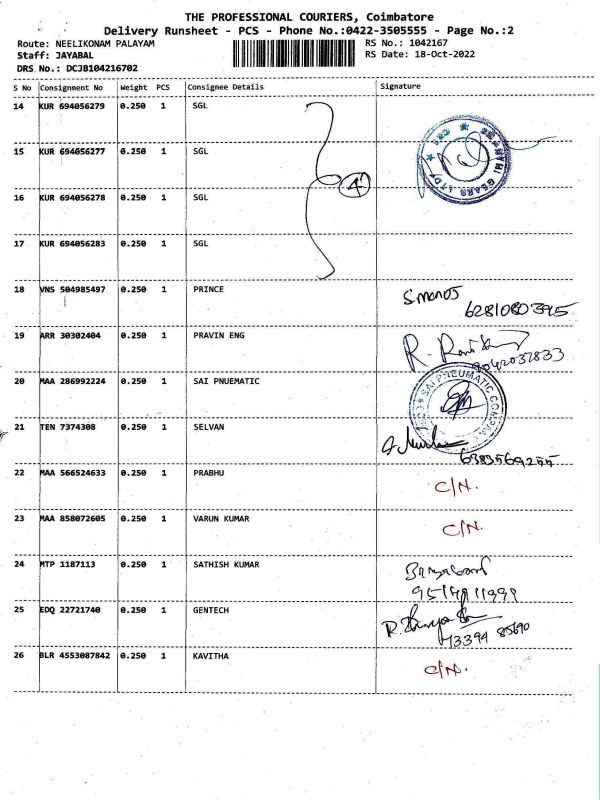 THE PROFESSIONAL COURIERS, Coimbatore
Delivery Runsheet - PCS - Phone No.:0422-3505555 - Page No.:2
Route: NEELIKONAM PALAYAM RS No.: 1042167
Staff: JAYABAL RS Date: 18-Oct-2022
DRS No.: DCJB104216702
S No Consignment No Weight PCS Consignee Details Signature
14 KUR 694056279 0.250 1 SGL
15 KUR 694056277 0.250 1 SGL
SHANTHI GEARS LTD
4
16 KUR 694056278 0.250 1 SGL
17 KUR 694056283 0.250 1 SGL
18 VNS 504985497 0.250 1 PRINCE S.manoj
6281080395
19 ARR 30302404 0.250 1 PRAVIN ENG
9042037833
20 MAA 286992224 0.250 1 SAI PNUEMATIC
SAI PNEUMATIC COMPA
21 TEN 7374308 0.250 1 SELVAN
6383569255
22 MAA 566524633 0.250 1 PRABHU C/N.
23 MAA 858072605 0.250 1 VARUN KUMAR C/N.
24 MTP 1187113 0.250 1 SATHISH KUMAR
25 EDQ 22721740 0.250 1 GENTECH
73394 85690
26 BLR 4553087842 0.250 1 KAVITHA C/N.